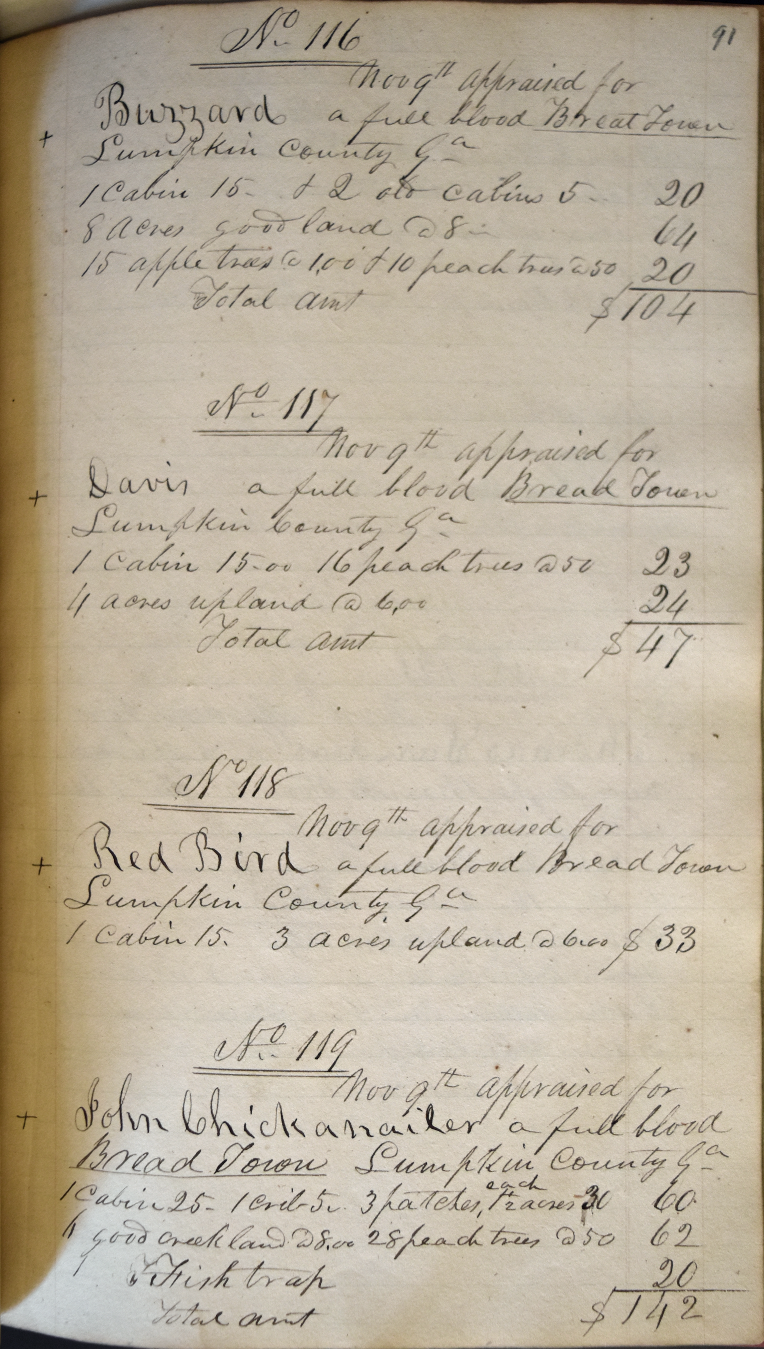 91
No. 116
Nov 9th appraised for
+ Buzzard a full blood Breat Town
Lumpkin County Ga
1 Cabin 15- & 2 old cabins 5- 20
8 Acres good land @ 8- 64
15 apple trees @ 1,00 & 10 peach trees @ 50 20
Total amt $104
No. 117
Nov 9th appraised for
+ Davis a full blood Bread Town
Lumpkin County Ga
1 Cabin 15-00 16 peach trees @ 50 23
4 acres upland @ 6,00 24
Total amt $47
No 118
Nov 9th appraised for
+ Red Bird a full blood Bread Town
Lumpkin County, Ga
1 Cabin 15. 3 acres upland @ 6.00 $33
No. 119
Nov 9th appraised for
+ John Chickanailer a full blood
Bread Town Lumpkin County Ga
1 Cabin 25- 1 crib 5- 3 patches, each 1½ acres 30 60
4 good creek land @ 8,00 28 peach trees @ 50 62
Fish trap 20
Total amt $142